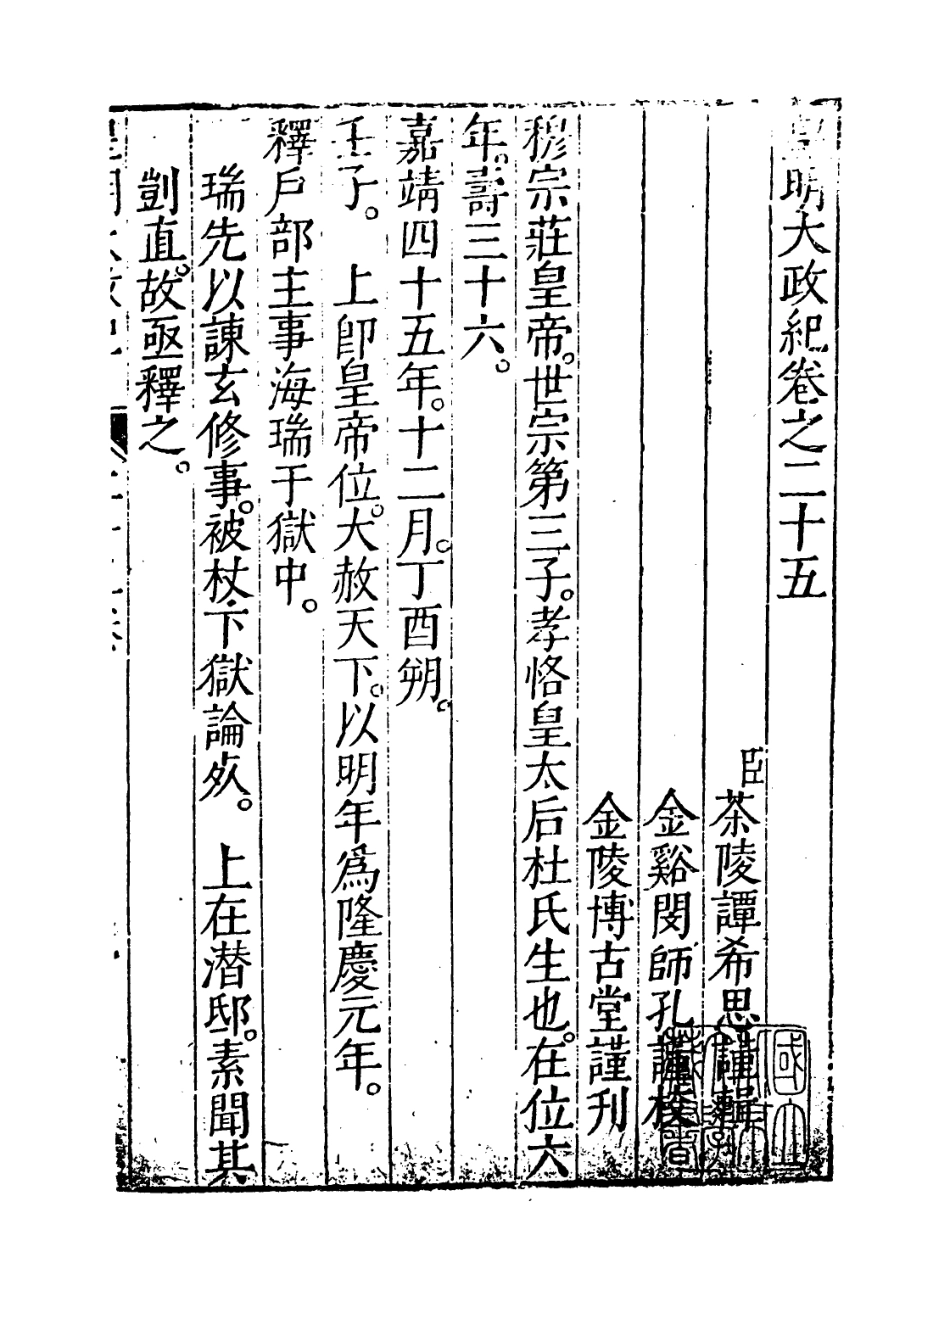 皇明大政紀卷之二十五
臣茶陵譚希思謹輯
金谿閔師孔謹校
金陵博古堂謹刊
穆宗莊皇帝。世宗第三子。孝恪皇太后杜氏生也。在位六
年。壽三十六。
嘉靖四十五年。十二月。丁酉朔。
壬子。 上卽皇帝位。大赦天下。以明年爲隆慶元年。
釋戶部主事海瑞于獄中。
瑞先以諫玄修事。被杖下獄論㱙。 上在潜邸。素聞其
剴直。故亟釋之。